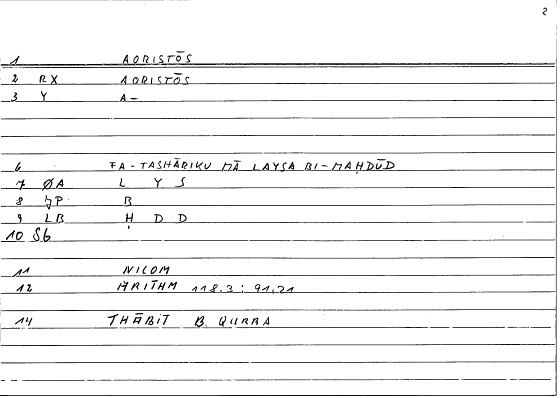 2
1 AORISTŌS
2 RX AORISTŌS
3 Y A-
6 FA-TASHĀRIKU MĀ LAYSA BI-MAḤDŪD
7 ØA L Y S
8 JP B
9 LB Ḥ D D
10 S6
11 NICOM
12 ARITHM 118.3 : 91,21
14 THĀBIT B. QURRA